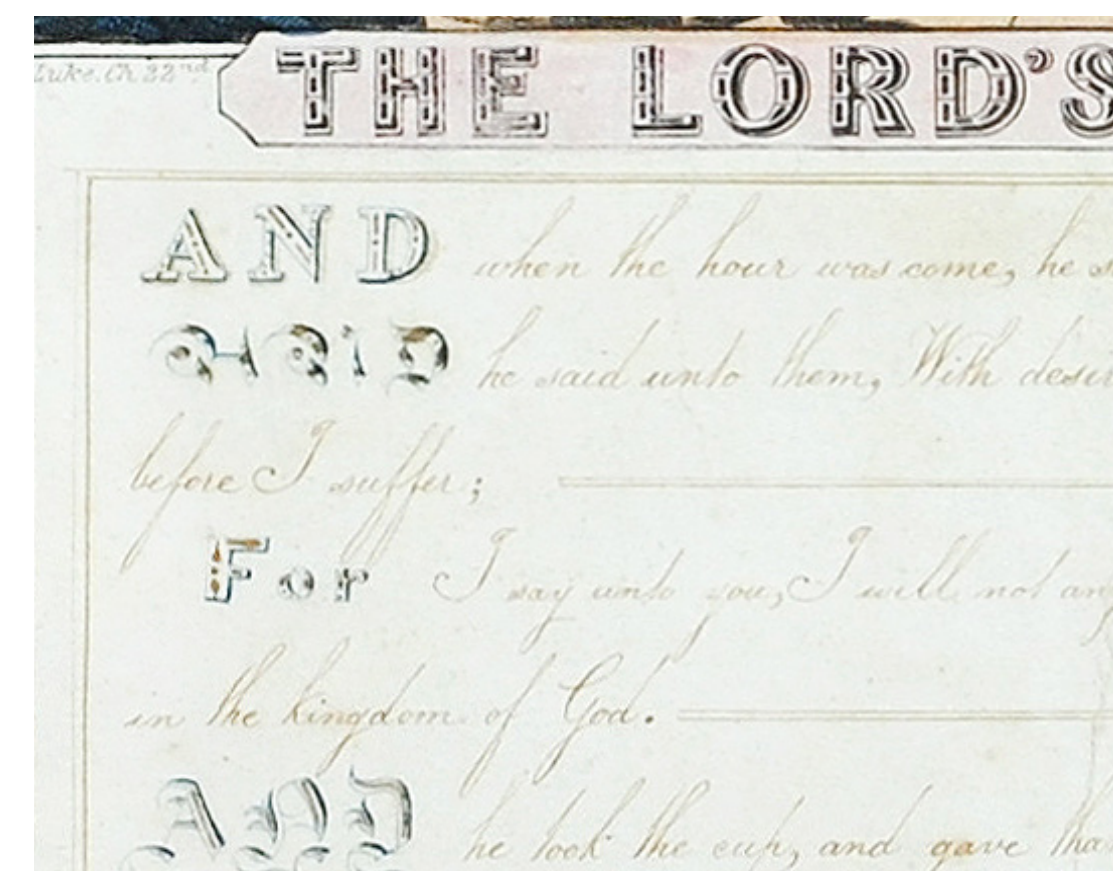 Luke. Ch. 22nd.
THE LORD'S
AND when the hour was come, he
AND he said unto them, With
before I suffer;
For I say unto you, I will not
in the kingdom of God.
AND he took the cup, and gave